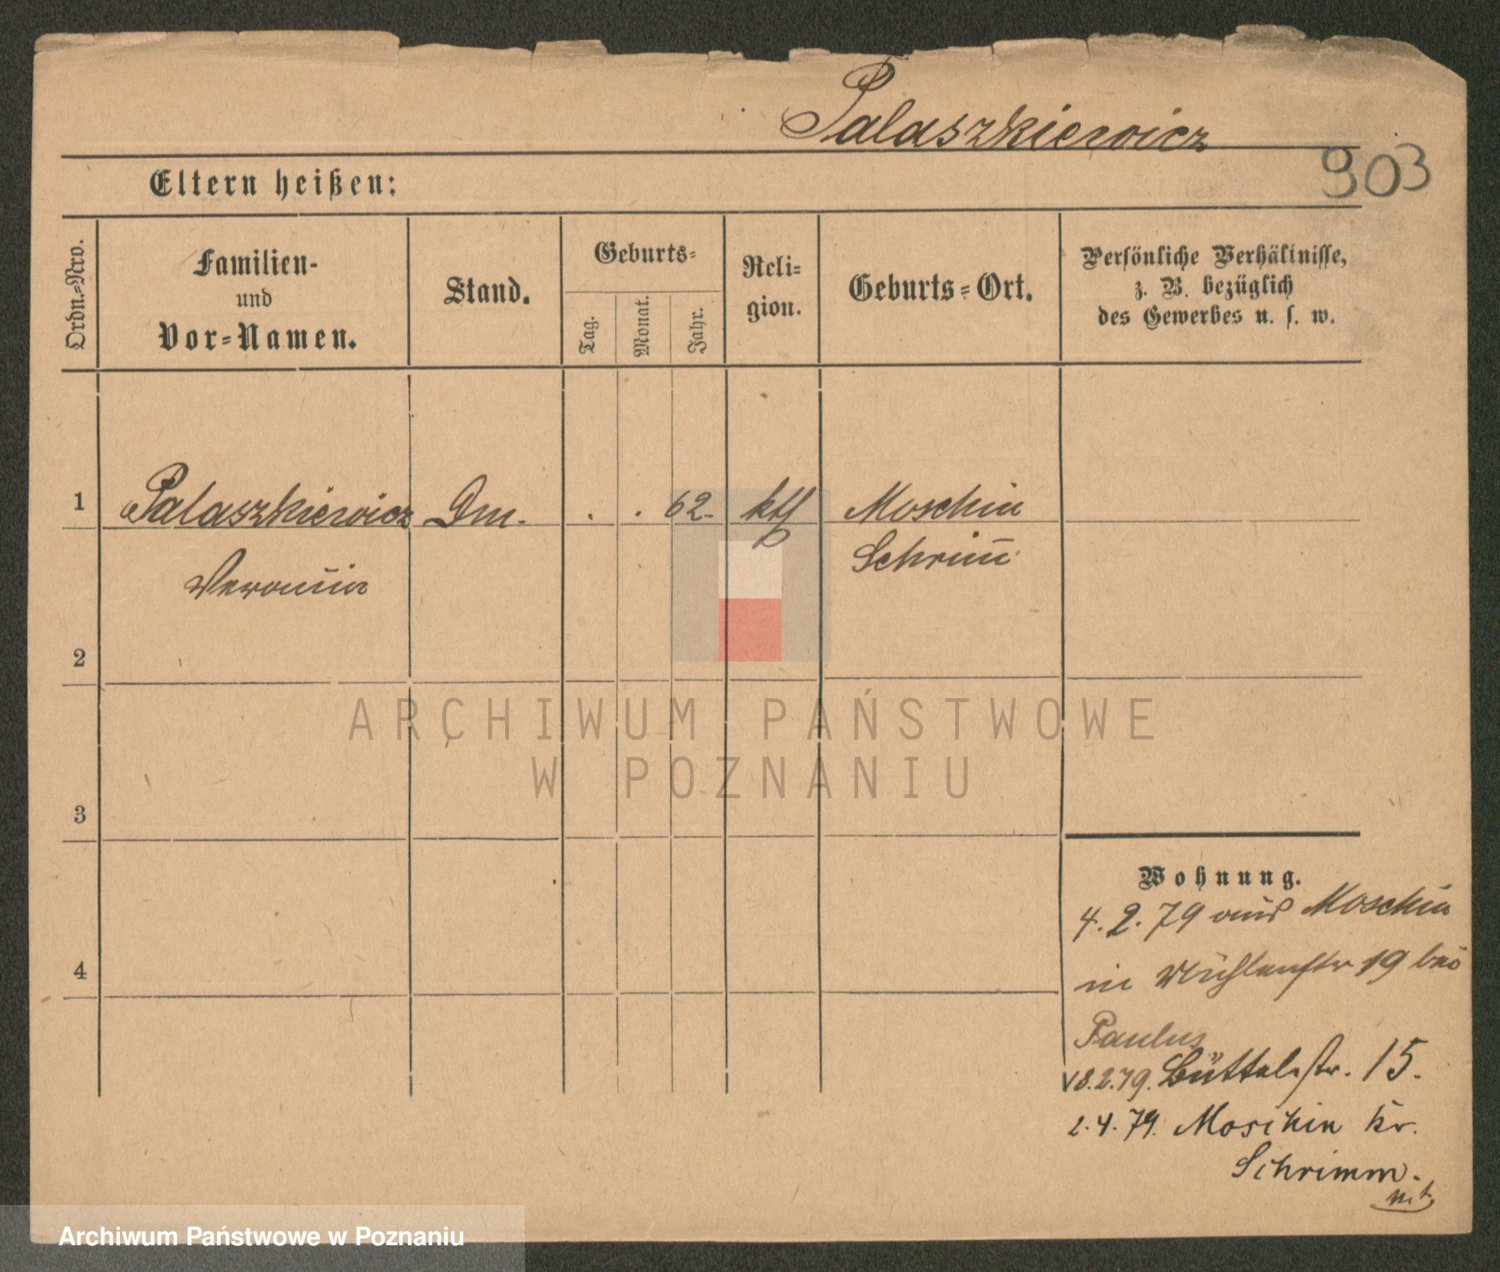 Palaszkiewicz
903
Eltern heißen:
Ordn.-Nro.
Familien-
und
Vor-Namen.
Stand.
Geburts-
Tag.
Monat.
Jahr.
Reli-
gion.
Geburts-Ort.
Persönliche Verhältnisse,
z. B. bezüglich
des Gewerbes u. s. w.
1
Palaszkiewicz Dm. . . 62. kth Moschin
Veronica Schrim̄
2
ARCHIWUM PAŃSTWOWE
W POZNANIU
3
Wohnung.
4. 2. 79 aus Moschin
4
in Mühlenstr 19 bei
Paulus
18.2.79. Büttelstr. 15.
2.4.79. Moschin Kr.
Schrimm.
Archiwum Państwowe w Poznaniu